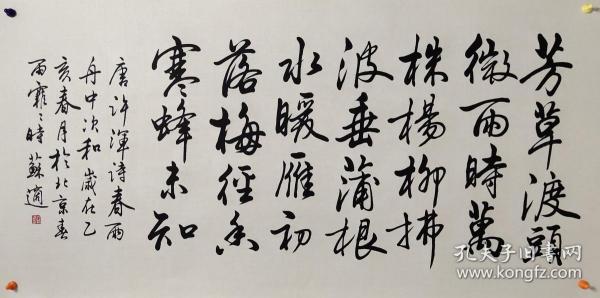 芳草渡頭
微雨時萬
株楊柳拂
波垂蒲根
水暖雁初
落梅徑香
寒蜂未知
唐許渾詩春雨
舟中次和歲在乙
亥春月於北京春
雨霏〻時蘇適
孔夫子旧书网
www.kongfz.com